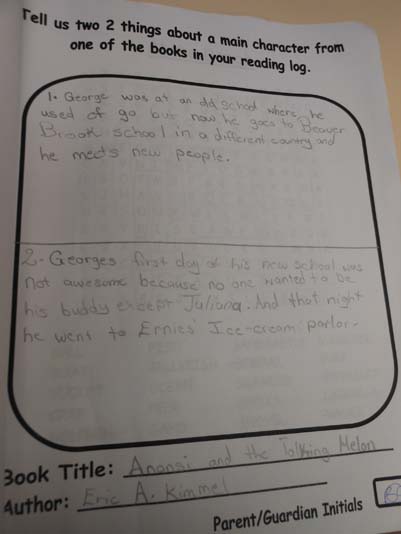 Tell us two 2 things about a main character from
one of the books in your reading log.
1. George was at an old school where he
used of go but now he goes to Beaver
Brook school in a different country and
he meets new people.
2- Georges first day of his new school was
not awesome because no one wanted to be
his buddy except Juliana. And that night
he went to Ernies Ice-cream parlor.
Book Title: Anansi and the Talking Melon
Author: Eric A. Kimmel
Parent/Guardian Initials